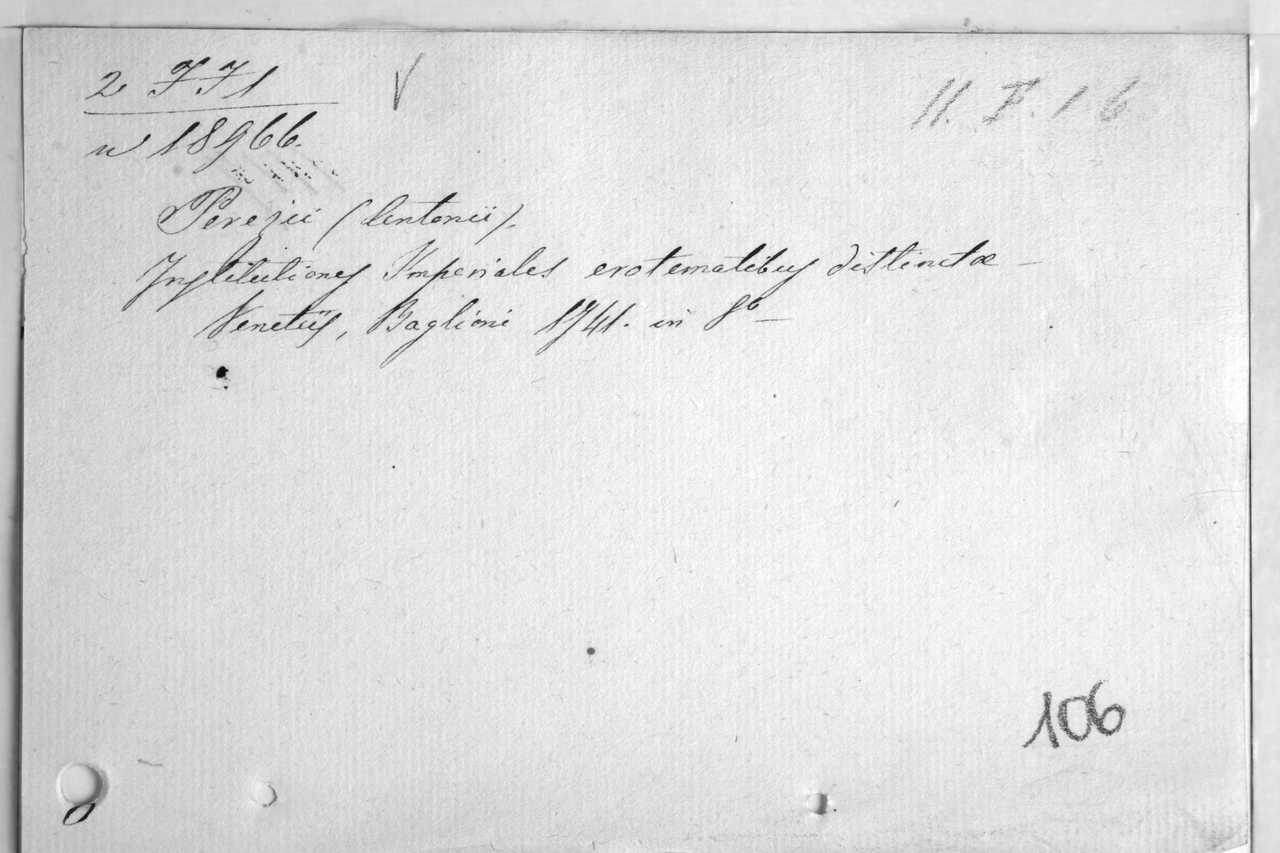 2 FF1
V
11. F. 1 6
n 18966.
Perezii (Antonii).
Institutiones Imperiales erotematibus distinctæ
Venetiis, Baglioni 1741. in 8º
106